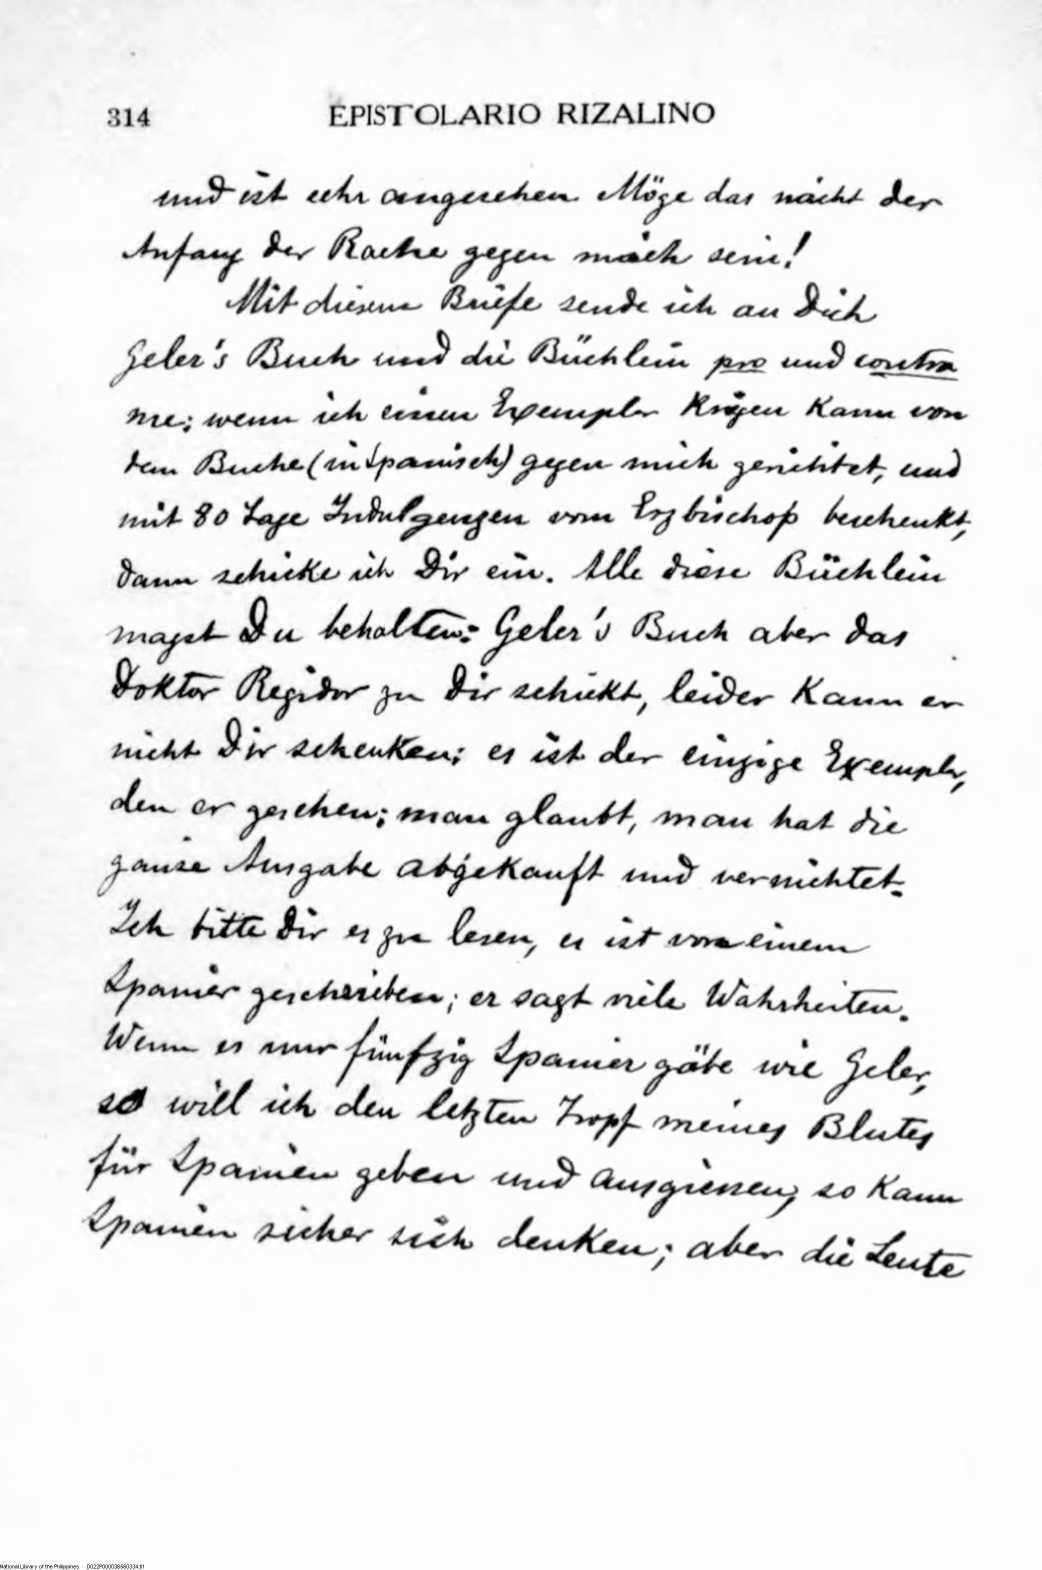 314 EPISTOLARIO RIZALINO
und ist sehr angesehen Möge das nicht der
Anfang der Rache gegen mich sein!
Mit diesem Briefe sende ich an Dich
Geler's Buch und die Büchlein pro und contra
me; wenn ich einen Exemplar krigen kann von
dem Buche (in Spanisch) gegen mich gerichtet, und
mit 80 Tage Indulgenzen vom Erzbischof beschenkt,
dann schicke ich Dir ein. Alle diese Büchlein
magst Du behalten: Geler's Buch aber das
Doktor Regidor zu Dir schickt, leider kann er
nicht Dir schenken; es ist der einzige Exemplar,
den er gesehen; man glaubt, man hat die
ganze Ausgabe abgekauft und vernichtet.
Ich bitte Dir es zu lesen, es ist von einem
Spanier geschrieben; er sagt viele Wahrheiten.
Wenn es nur fünfzig Spanier gäbe wie Geler,
so will ich den letzten Tropf meines Blutes
für Spanien geben und ausgiessen, so kann
Spanien sicher sich denken; aber die Leute
National Library of the Philippines